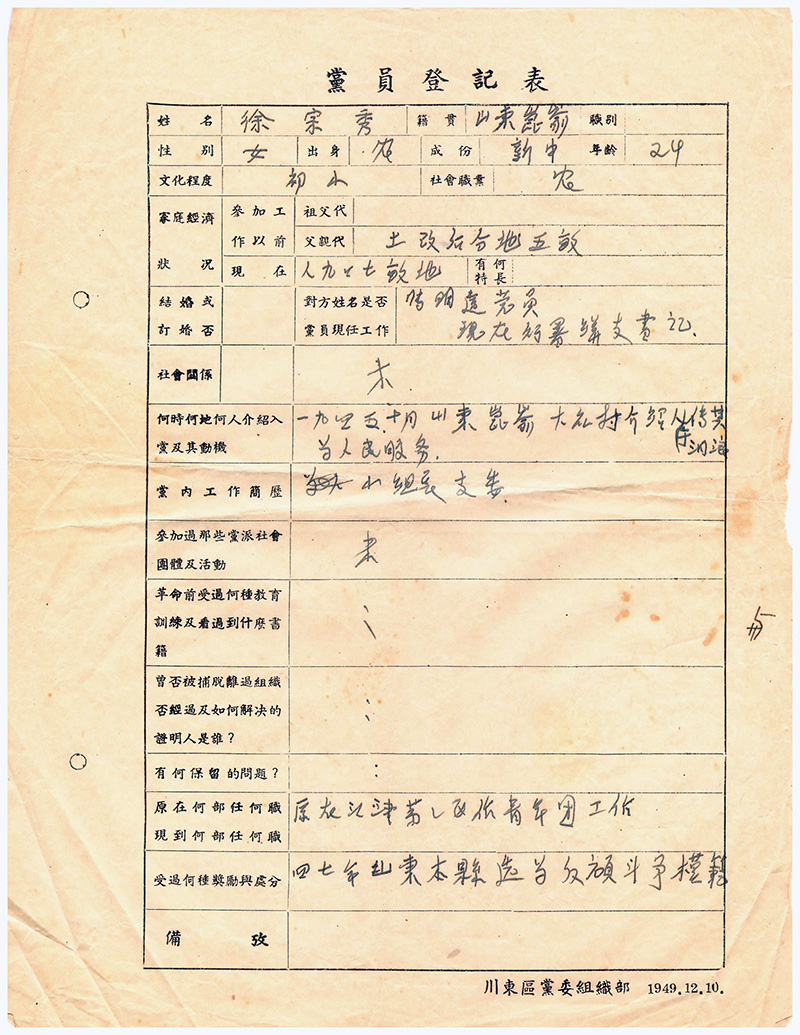 黨員登記表
姓名 徐宗秀 籍貫 山東崑嵛 職別
性別 女 出身 农 成份 新中 年齡 24
文化程度 初小 社會職業 农
家庭經濟狀況 參加工作以前 祖父代
父親代 土改后分地五畝
現在 人九口七畝地 有何特長
結婚或訂婚否 對方姓名是否黨員現任工作 明遠党員
現在行署 支書记.
社會關係 未
何時何地何人介紹入 一九四五.十月山東崑嵛 大 村介紹人
黨及其動機 为人民服务.
黨內工作簡歷 小組長支委
參加過那些黨派社會 未
團體及活動
革命前受過何種教育
訓練及看過到什麽書
籍
曾否被捕脫離過組織
否經過及如何解決的
證明人是誰?
有何保留的問題?
原在何部任何職 原在江津第 区作青年团工作
現到何部任何職
受過何種獎勵與處分 四七年山東本縣选为反頑斗争模範
備攷
川東區黨委組織部 1949.12.10.